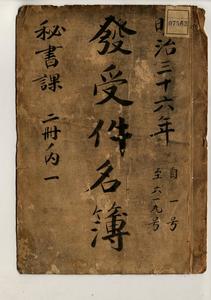 明治三十六年
自一号
至六一九号
發受件名簿
秘書課
二冊ノ内一